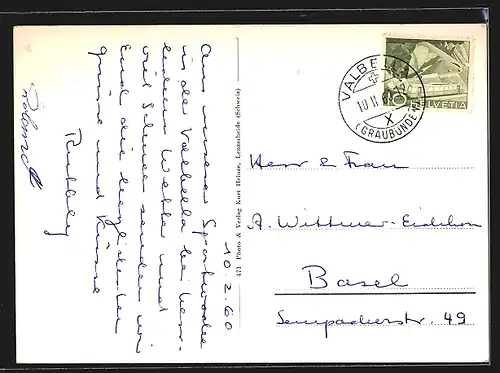 10.2.60
Aus unserer Sportwoche
in der Valbella bei herr-
lichem Wetter und
viel Schnee senden wir
Euch die herzlichsten
Grüsse und Küsse
Ruthly
Roland
472 Photo & Verlag Kurt Heinze, Lenzerheide (Schweiz)
VALBELLA
10 II
X
(GRAUBÜNDEN)
10
HELVETIA
Herr & Frau
A. Wittmer-Eichhorn
Basel
Sempacherstr. 49